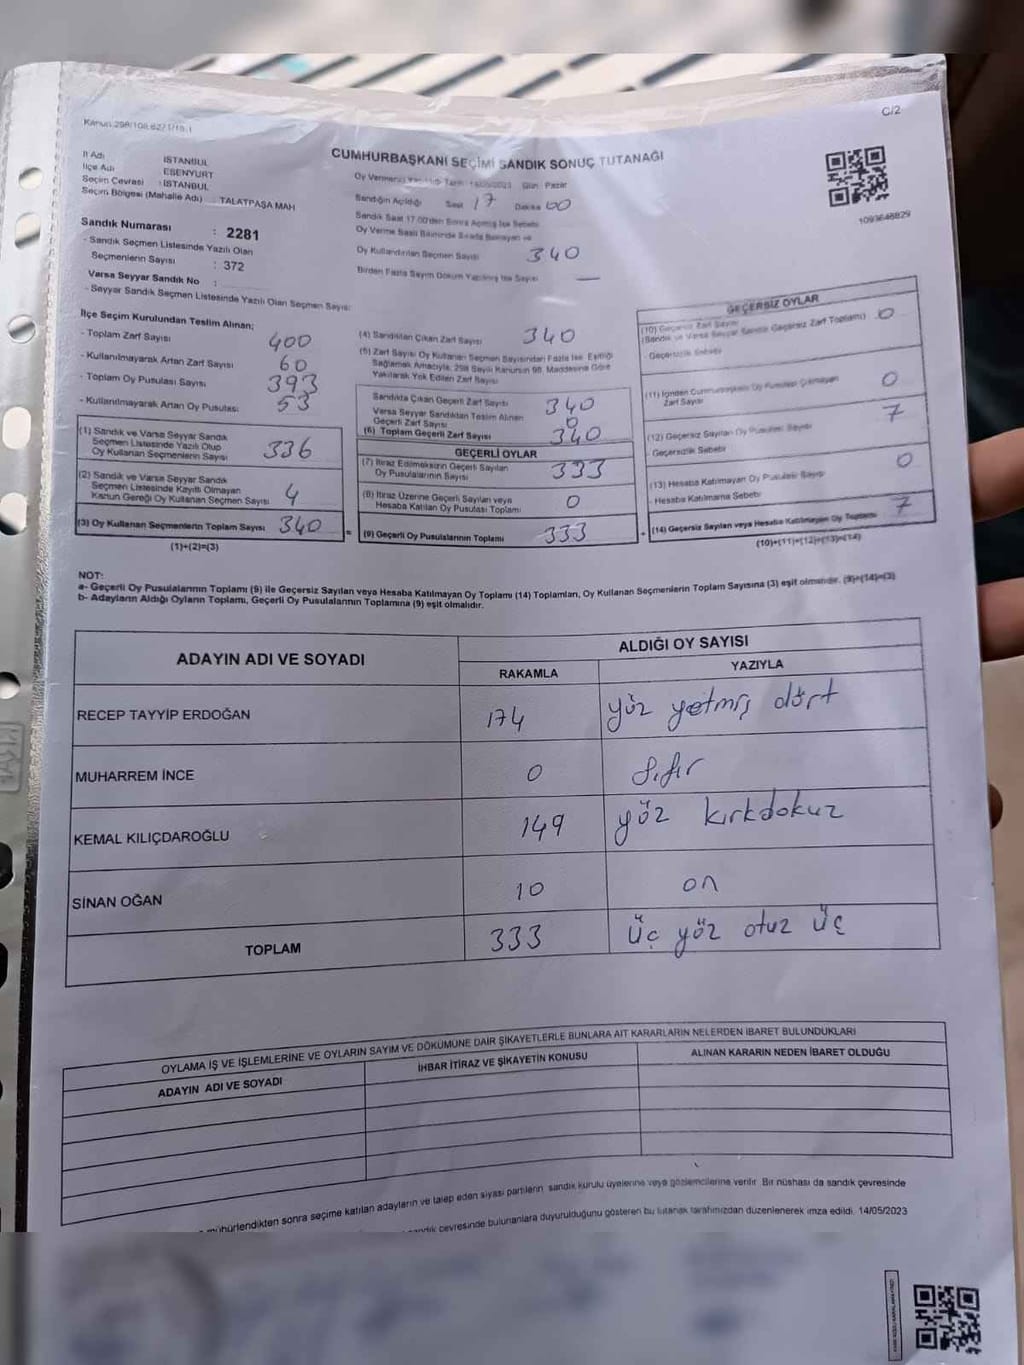 C/2
Kanun:298/108,627/1/18.1
CUMHURBAŞKANI SEÇİMİ SANDIK SONUÇ TUTANAĞI
İl Adı : İSTANBUL
İlçe Adı : ESENYURT
Seçim Çevresi : İSTANBUL
Seçim Bölgesi (Mahalle Adı) : TALATPAŞA MAH
Sandık Numarası : 2281
- Sandık Seçmen Listesinde Yazılı Olan
Seçmenlerin Sayısı : 372
Varsa Seyyar Sandık No :
- Seyyar Sandık Seçmen Listesinde Yazılı Olan Seçmen Sayısı:
Gün : Pazar
Sandığın Açıldığı Saat 17 Dakika 00
Sandık Saat 17.00'den Sonra Açılmış İse Sebebi
Oy Kullandırılan Seçmen Sayısı 340
Birden Fazla Sayım Döküm Yapılmış İse Sayısı —
1093648829
İlçe Seçim Kurulundan Teslim Alınan;
- Toplam Zarf Sayısı 400
- Kullanılmayarak Artan Zarf Sayısı 60
- Toplam Oy Pusulası Sayısı 393
- Kullanılmayarak Artan Oy Pusulası 53
(1) Sandık ve Varsa Seyyar Sandık
Seçmen Listesinde Yazılı Olup
Oy Kullanan Seçmenlerin Sayısı 336
(2) Sandık ve Varsa Seyyar Sandık
Seçmen Listesinde Kayıtlı Olmayan
Kanun Gereği Oy Kullanan Seçmen Sayısı 4
(3) Oy Kullanan Seçmenlerin Toplam Sayısı 340
(1)+(2)=(3)
(4) Sandıktan Çıkan Zarf Sayısı 340
(5) Zarf Sayısı Oy Kullanan Seçmen Sayısından Fazla İse, Eşitliği
Sağlamak Amacıyla, 298 Sayılı Kanunun 98. Maddesine Göre
Yakılarak Yok Edilen Zarf Sayısı
Sandıkta Çıkan Geçerli Zarf Sayısı 340
Varsa Seyyar Sandıktan Teslim Alınan
Geçerli Zarf Sayısı 0
(6) Toplam Geçerli Zarf Sayısı 340
GEÇERLİ OYLAR
(7) İtiraz Edilmeksizin Geçerli Sayılan
Oy Pusulalarının Sayısı 333
(8) İtiraz Üzerine Geçerli Sayılan veya
Hesaba Katılan Oy Pusulası Toplamı 0
= (9) Geçerli Oy Pusulalarının Toplamı 333
GEÇERSİZ OYLAR
(10) Geçersiz Zarf Sayısı 0
(Sandık ve Varsa Seyyar Sandık Geçersiz Zarf Toplamı)
- Geçersizlik Sebebi
(11) İçinden Cumhurbaşkanı Oy Pusulası Çıkmayan
Zarf Sayısı 0
(12) Geçersiz Sayılan Oy Pusulası Sayısı 7
- Geçersizlik Sebebi
(13) Hesaba Katılmayan Oy Pusulası Sayısı 0
- Hesaba Katılmama Sebebi
+ (14) Geçersiz Sayılan veya Hesaba Katılmayan Oy Toplamı 7
(10)+(11)+(12)+(13)=(14)
NOT:
a- Geçerli Oy Pusulalarının Toplamı (9) ile Geçersiz Sayılan veya Hesaba Katılmayan Oy Toplamı (14) Toplamları, Oy Kullanan Seçmenlerin Toplam Sayısına (3) eşit olmalıdır. (9)+(14)=(3)
b- Adayların Aldığı Oyların Toplamı, Geçerli Oy Pusulalarının Toplamına (9) eşit olmalıdır.
ADAYIN ADI VE SOYADI
ALDIĞI OY SAYISI
RAKAMLA YAZIYLA
RECEP TAYYİP ERDOĞAN 174 yüz yetmiş dört
MUHARREM İNCE 0 sıfır
KEMAL KILIÇDAROĞLU 149 yüz kırkdokuz
SİNAN OĞAN 10 on
TOPLAM 333 üç yüz otuz üç
OYLAMA İŞ VE İŞLEMLERİNE VE OYLARIN SAYIM VE DÖKÜMÜNE DAİR ŞİKAYETLERLE BUNLARA AİT KARARLARIN NELERDEN İBARET BULUNDUKLARI
ADAYIN ADI VE SOYADI
İHBAR İTİRAZ VE ŞİKAYETİN KONUSU
ALINAN KARARIN NEDEN İBARET OLDUĞU
mühürlendikten sonra seçime katılan adayların ve talep eden siyasi partilerin sandık kurulu üyelerine veya gözlemcilerine verilir. Bir nüshası da sandık çevresinde
çevresinde bulunanlara duyurulduğunu gösteren bu tutanak tarafımızdan düzenlenerek imza edildi. 14/05/2023